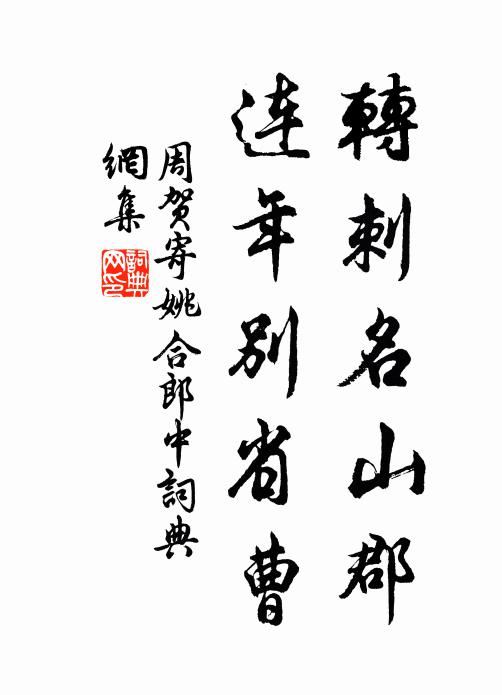 轉刺名山郡
連年別省曹
周賀寄姚合郎中詞典
網集
詞典網印